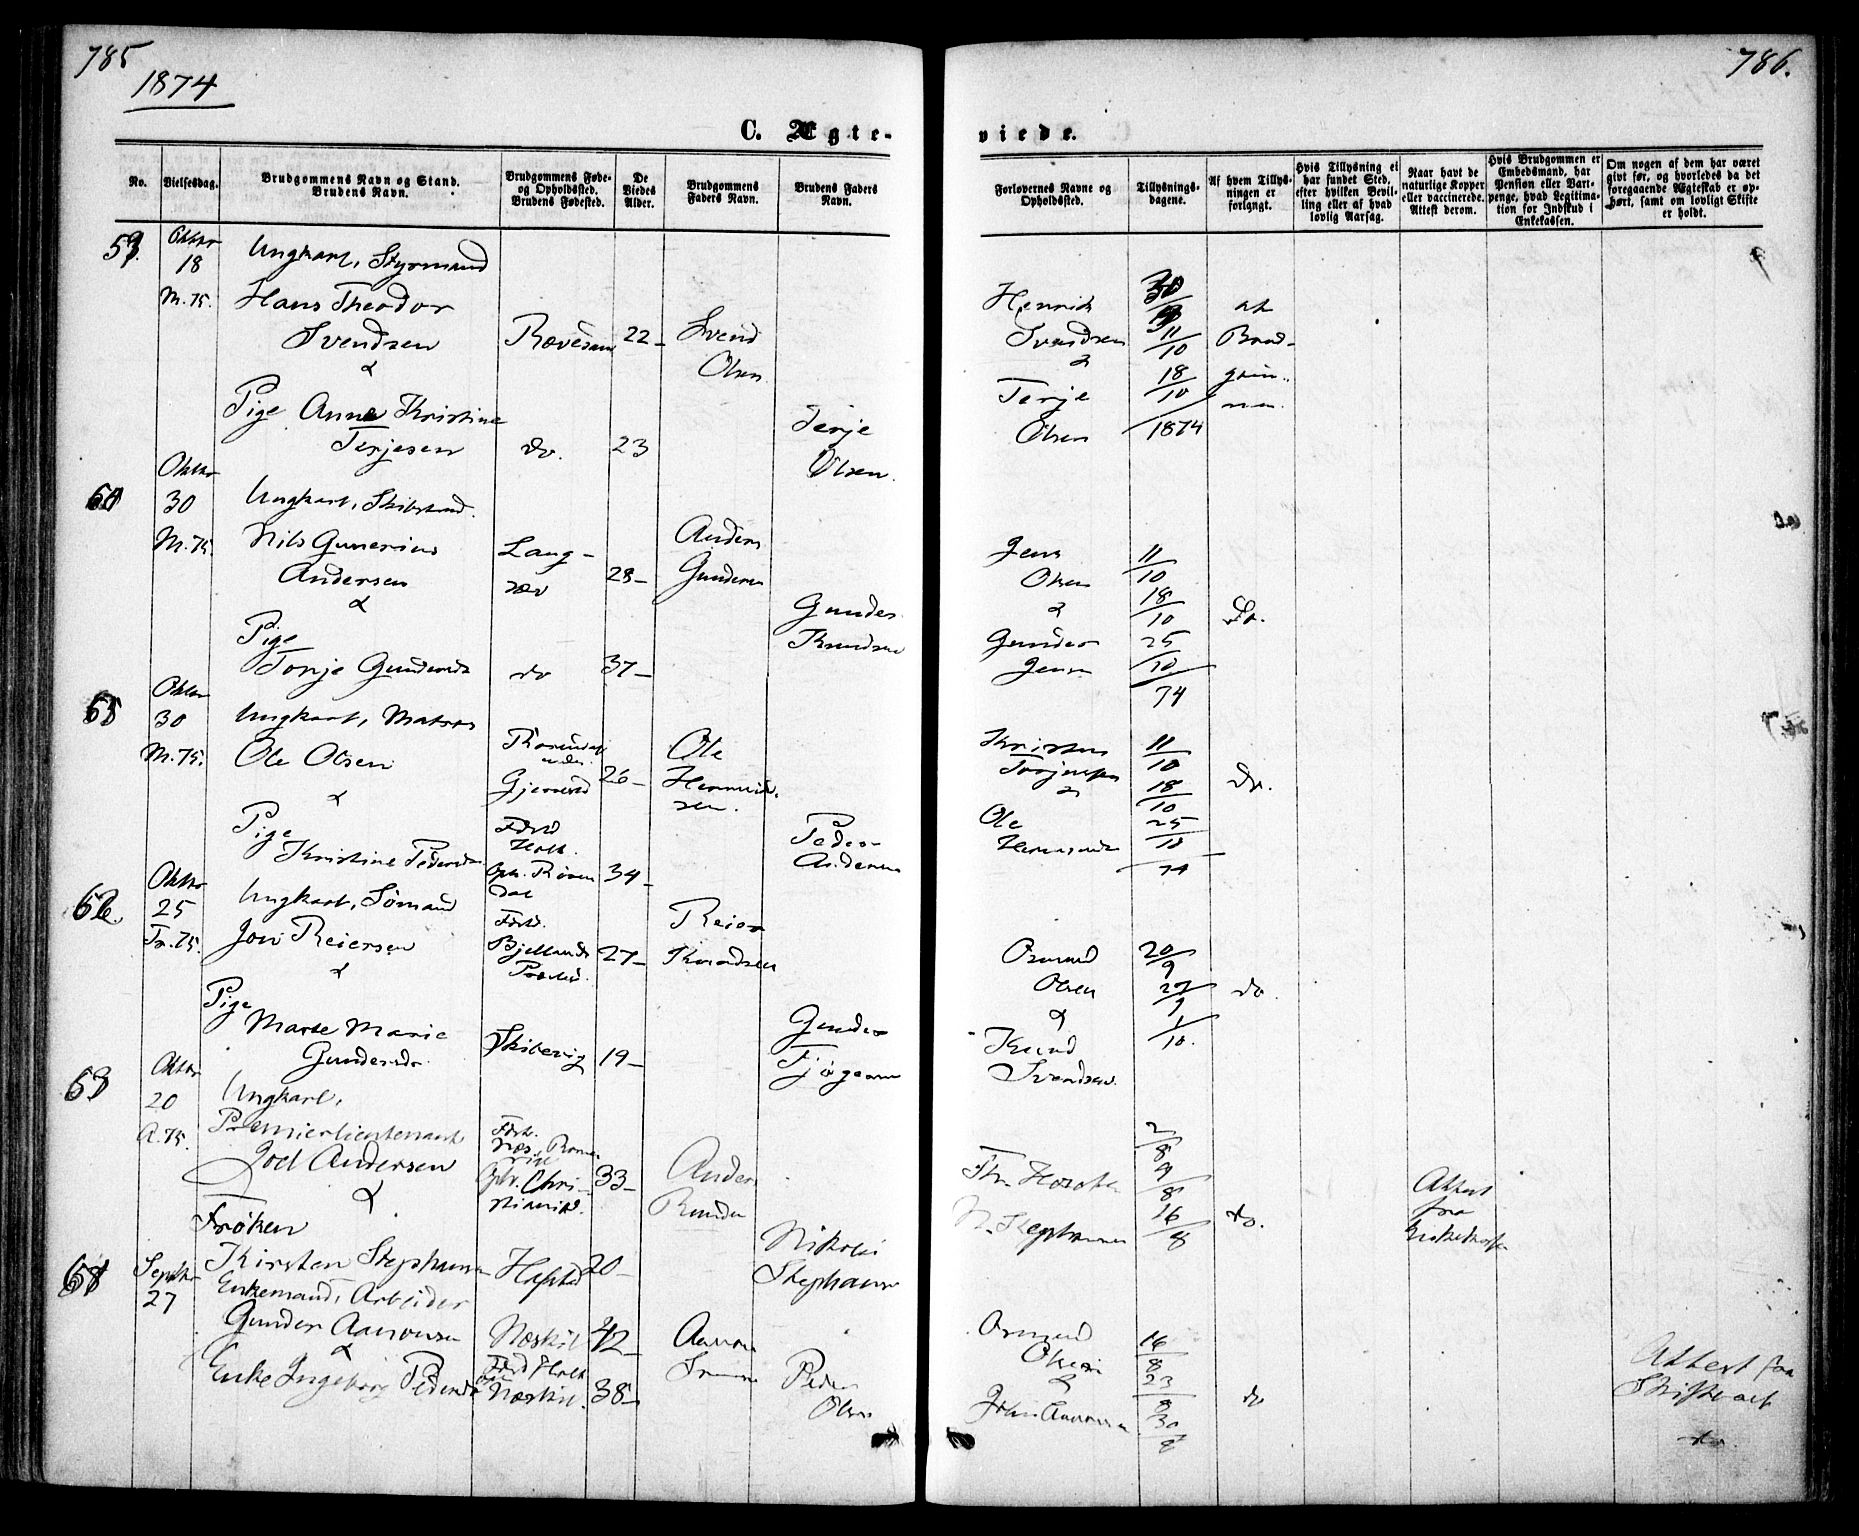 785
1874
C. Ægte-
No.
Vielsesdag.
Brudgommens Navn og Stand.
Brudens Navn.
Brudgommens Føde-
og Opholdssted.
Brudens Fødested.
De
Viedes
Alder.
Brudgommens
Faders Navn.
Brudens Faders
Navn.
59.
Oktbr
18
M. 75.
Ungkarl, Styrmand
Hans Theodor
Svendsen
&
22
Svend
Olsen
Pige Anne Kristine
Terjesen
do.
23
Terje
Olsen.
60
Oktbr
30
M. 75.
Ungkarl, Skibstmd.
Nils Gunerius
Andersen
&
Lang-
sæv
28
Anders
Gundersen
Pige
Tonje Gundersd
do
37
Gunder
Knudsen
Oktbr
30
M. 75.
Ungkarl, Matros
Ole Olsen
&
Gjerrestad
26
Ole
Pige
Kristine Pedersd
Holt
Oph. Rosen
dal
34
Peder
Andersen
62.
Oktbr
25
Tr. 75.
Ungkarl, Sømand
Jon Reiersen
&
Fdst.
Bjellands
Præstd.
27
Reier
Knudsen
Pige
Marte Marie
Gundersdr.
Skibevig
19
Gunder
63
Oktbr
20
A. 75.
Ungkarl,
Premierlieutenant
Joel Andersen
&
Fdst.
Næs, Rome
rike
Oph. Chri-
stiania.
33
Anders
Frøken
Kirsten Stephansen
20
Nikolai
Stephansen
Septbr
27
Enkemand, Arbeider
Gunder Aanonsen
&
Næskil
42
Aanon
Enke Ingeborg Pedersdr
Fdst Holt
Næskil.
38
Peder
Olsen
786.
viede.
Forlovernes Navne og
Opholdssted.
Tillysnings-
dagene.
Af hvem Tillys-
ningen er
forlangt.
Hvis Tillysning ei
har fundet Sted,
efter hvilken Bevil-
ling eller af hvad
lovlig Aarsag.
Naar havt de
naturlige Kopper
eller vaccinerede.
Attest derom.
Hvis Brudgommen er
Embedsmand, har
Pension eller Vart-
penge, hvad Legitima-
tion for Indskud i
Enkekassen.
Om nogen af dem har været
givt før, og hvorledes da det
foregaaende Ægteskab er op-
hørt, samt om lovligt Skifte
er holdt.
Henrik
Svendsen
&
Terje
Olsen
11/10
18/10
1874
af
Brud-
gom-
men.
Jens
Olsen
&
Gunder
Jensen
11/10
18/10
25/10
74
Do.
Kristen
Terjesen
&
Ole
11/10
18/10
25/10
74
Do.
Osmund
Olsen
&
Knud
Svendsen
20/9
27/9
1/10.
do.
N. Stephansen
2/8
9/8
16/8
do.
Attest
fra
Enkekassen
Osmund
Olsen
&
John Aanonsen
16/8
23/8
30/8
do
Attest fra
Skifteret
do.